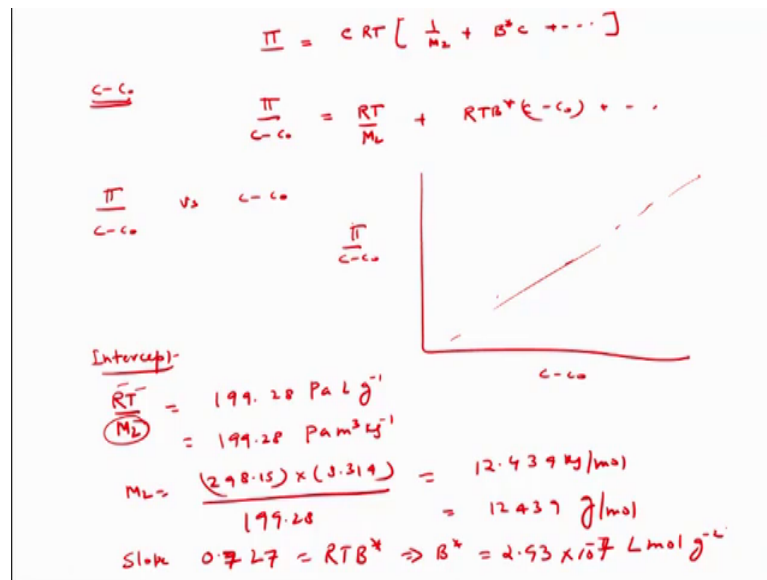 π = c RT [ 1/M₂ + B*c + ··· ]
c-c₀
π/c-c₀ = RT/M₂ + RTB*(c-c₀) + - .
π/c-c₀ vs c-c₀
π/c-c₀
c-c₀
Intercept-
RT/M₂ = 199.28 Pa L g⁻¹
= 199.28 Pa m³ kg⁻¹
M₂ = (298.15) × (8.314)/199.28 = 12.439 kg/mol
= 12439 g/mol
Slope 0.727 = RTB* ⇒ B* = 2.93 × 10⁻⁷ L mol g⁻²